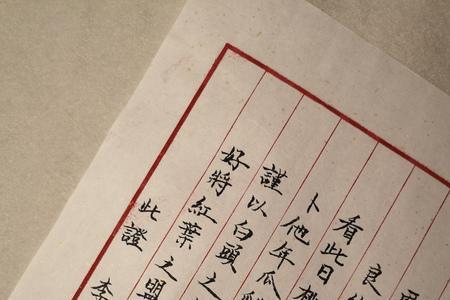 良
看此日桃
卜他年瓜
謹以白頭之
好將紅葉之盟
此證 李